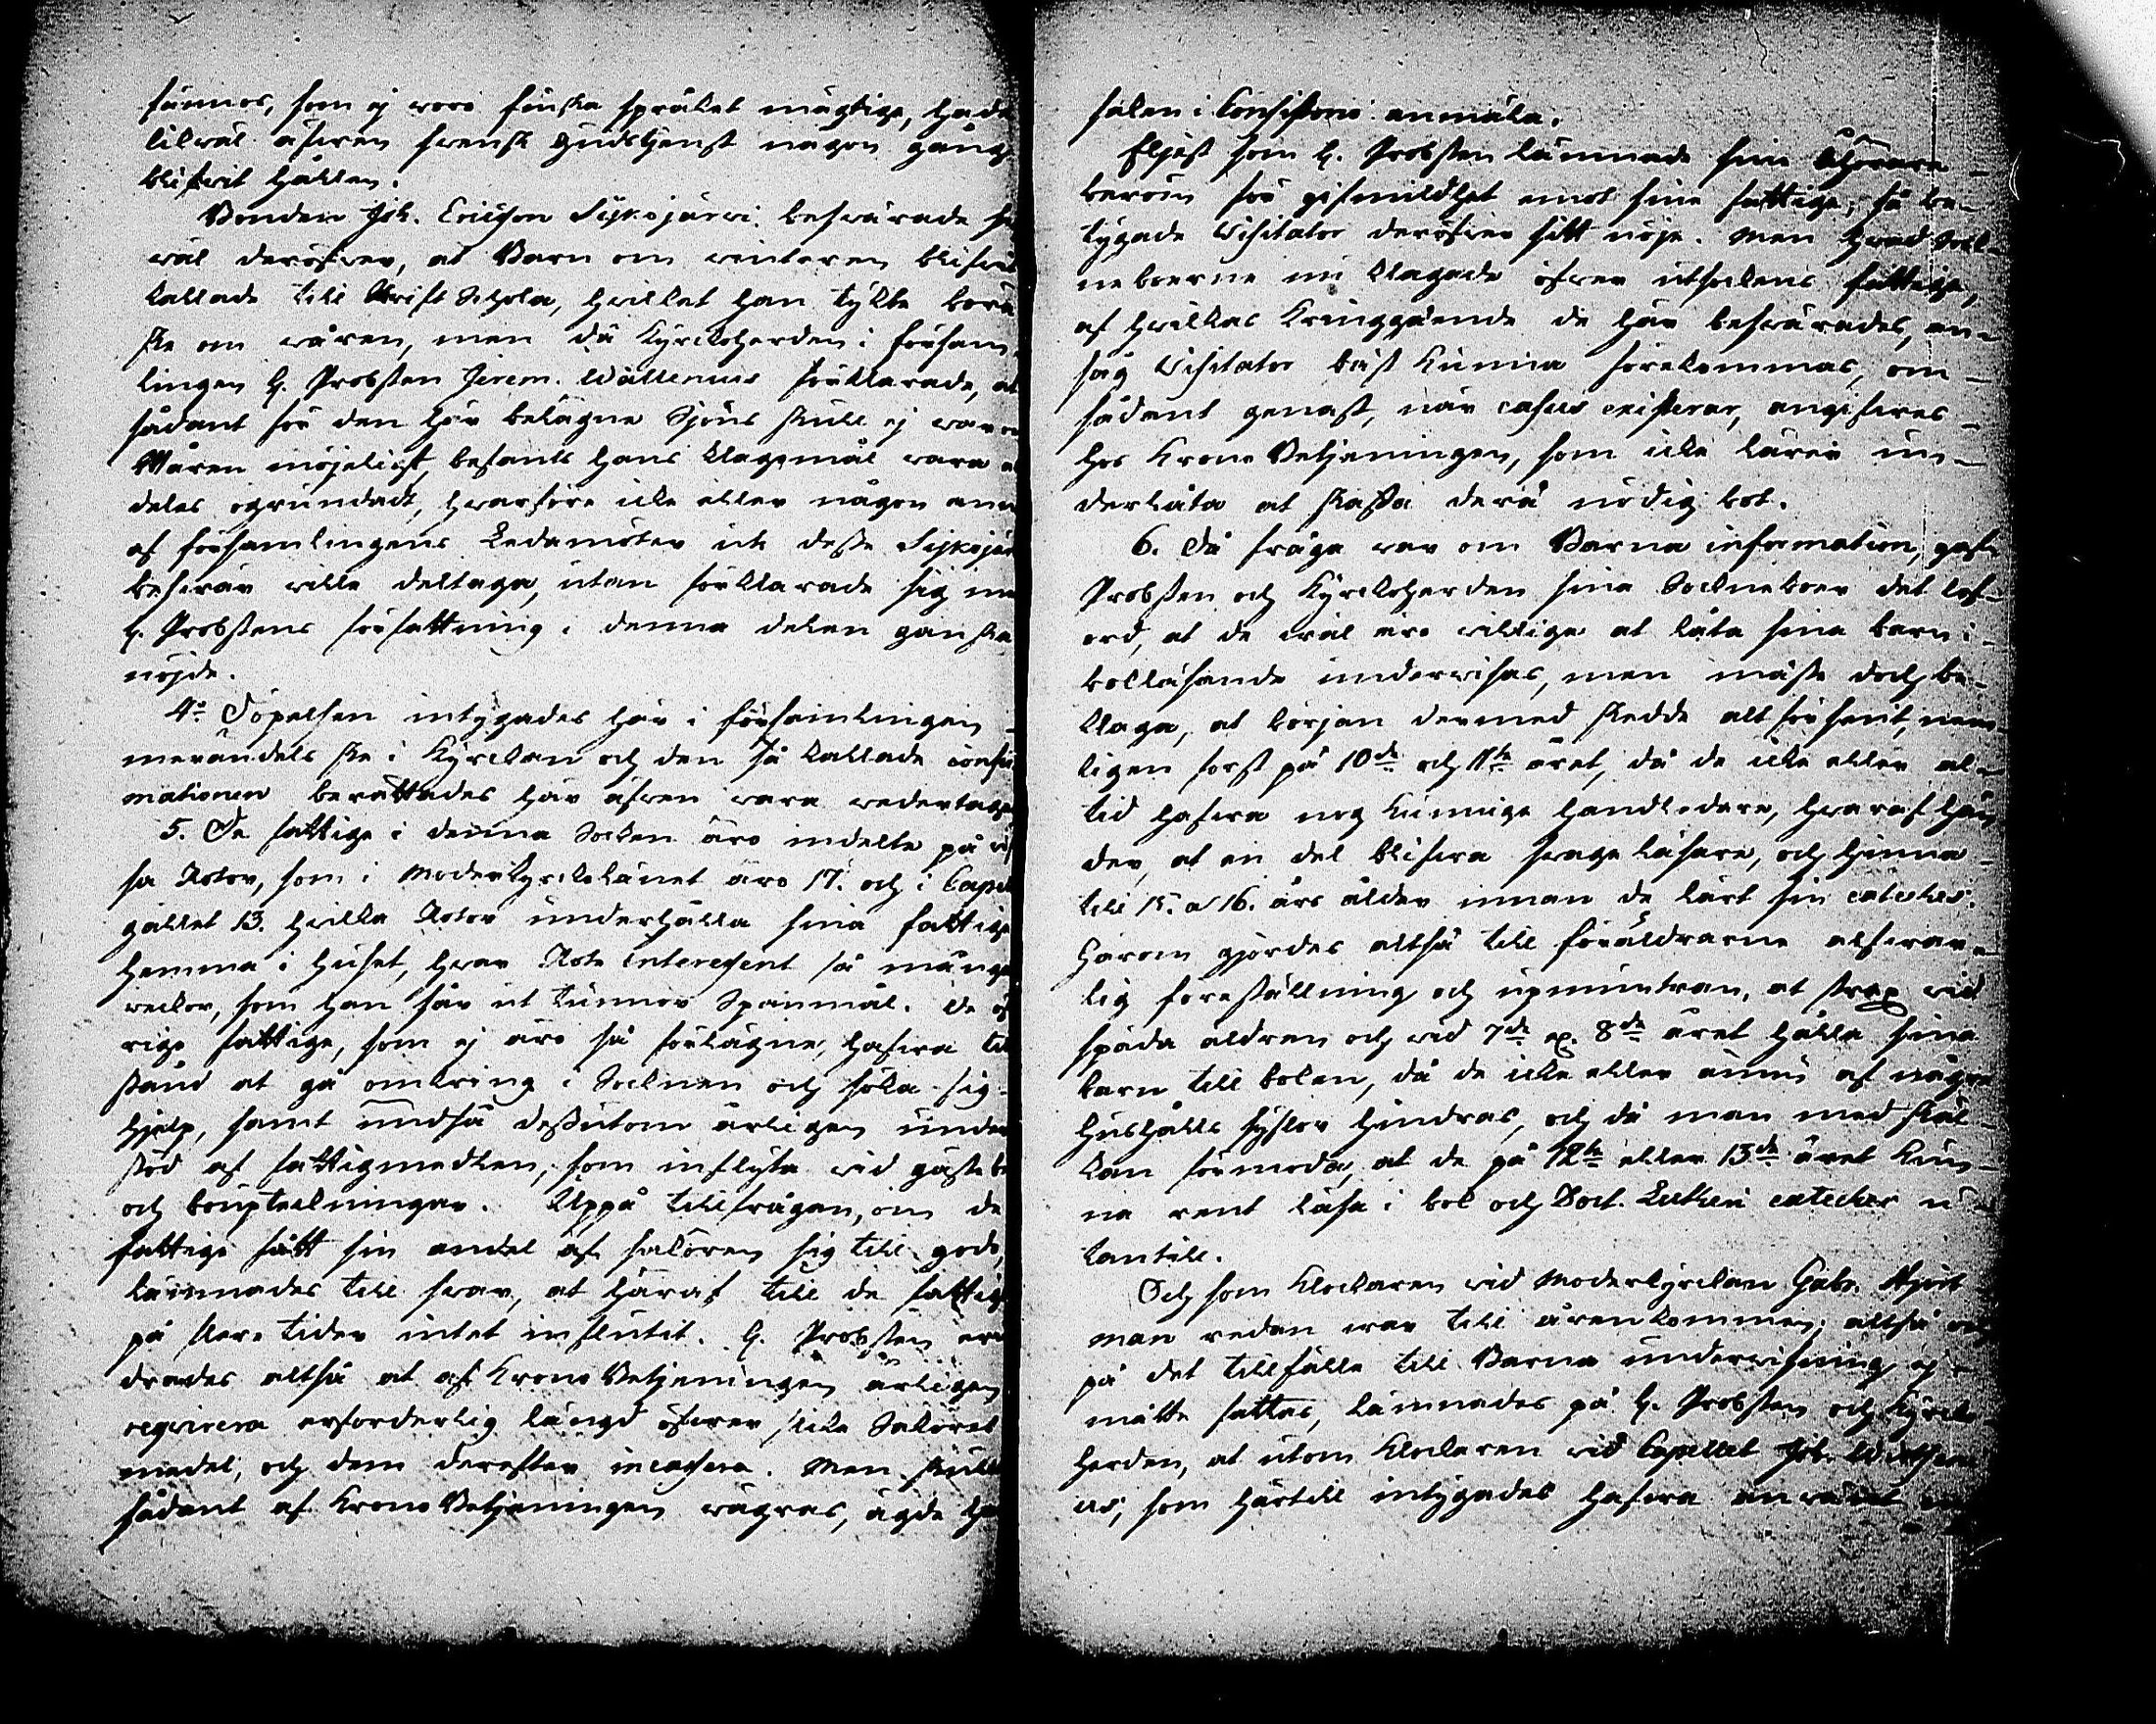 funnos, som ej woro finska språket mägtige, hade
likwäl äfwen swensk Gudstjenst någon gång
blifwit hållen.
Bonden Joh. Ericsson Sijkojärwi beswärade sig
wäl deröfwer, at Barn om winteren blifwit
kallade till Skrift Schola, hwilket han tykte bora
ske om wåren, men då Kyrckoherden i försam-
lingen H. Probsten Jerem. Wallenius förklarade, at
sådant för den här belägne Sjöns skull ej wore om
Wåren möjeligt, befants hans klagomål wara al
deles ogrundadt, hwarföre icke eller någon ann
af församlingens Ledamöter uti desse Sijkojär
beswär wille deltaga, utan förklarade sig med
H. Probstens författning i denna delen ganska
nöjde.
4:o Döpelsen intygades här i församlingen
merändels ske i Kyrckan och den så kallade confir
mationen berättades här äfwen wara wedertagen
5. De fattige i denna Socken äro indelte på wis
sa Rotor, som i Moderkyrckolänet äro 17. och i Capell
gället 13. hwilka Rotor underhålla sina fattige
hemma i huset, hwar Rote Interessent så många
weckor, som han sår ut tunnor Spanmål. De öf
rige fattige, som ej äro så förlägne, hafwa till
stånd at gå omkring i Socknen och söka sig
hjelp, samt undfå dessutom årligen under
stöd af fattigmedlen, som inflyta wid gästebo
och bouptekningar. Uppå tillfrågan, om de
fattige fått sin andel af sakören sig till godo,
lämnades till swar, at häraf till de fattige
på flere tider intet influtit. H. Probsten erin
drades altså at af Krono Betjeningen årligen
requirera erforderlig längd öfwer slike Saköres
medel, och dem derefter incassera. Men skulle
sådant af Krono Betjeningen wägras, ägde han
saken i Consistorio anmäla.
Eljest som H. Probsten lämnade sine Åhörare
beröm för gifmildhet emot sine fattige, så be-
tygade Visitator deröfwer sitt nöje. Men hwad Sock-
neboerne nu klagade öfwer utsocknes fattige,
af hwilkas kringgående de här beswärades, an-
såg Visitator bäst kunna förekommas, om
sådant genast, när casus existerar, angifwes
hos Krono Betjeningen, som icke lärer un-
derlåta at skaffa derå nödig bot.
6. Då fråga war om Barna information, gaf
Probsten och Kyrckoherden sina Socknebоer det lof-
ord, at de wäl äro willige at låta sina barn i
bokläsande underwisas, men måste doch be-
klaga, at början dermed skedde alt för sent, nem-
ligen först på 10de och 11te året, då de icke eller al-
tid hafwa nog kunnige handledare, hwaraf hän
der, at en del blifwa swage läsare, och hinna
till 15. a 16. års ålder innan de lärt sin cateches.
Härom gjordes altså till föräldrarne alfwar-
lig föreställning och upmuntran, at strax wid
späda åldren och wid 7de a 8de året hålla sina
barn till boken, då de icke eller ännu af några
hushålls syslor hindras, och då man med skäl
kan förmoda, at de på 12te eller 13de året kun-
na rent läsa i bok och Doct. Lutheri cateches u-
tantill.
Och som Klockaren wid Moderkyrckan Gabr.
man redan war till åren kommen; altså och
på det tillfälle till Barna underwisning ej
måtte fattas, lämnades på H. Probsten och Kyrcko
herden, at utom Klockaren wid Capellet Joh.
us, som härtill intygades hafwa anwändt